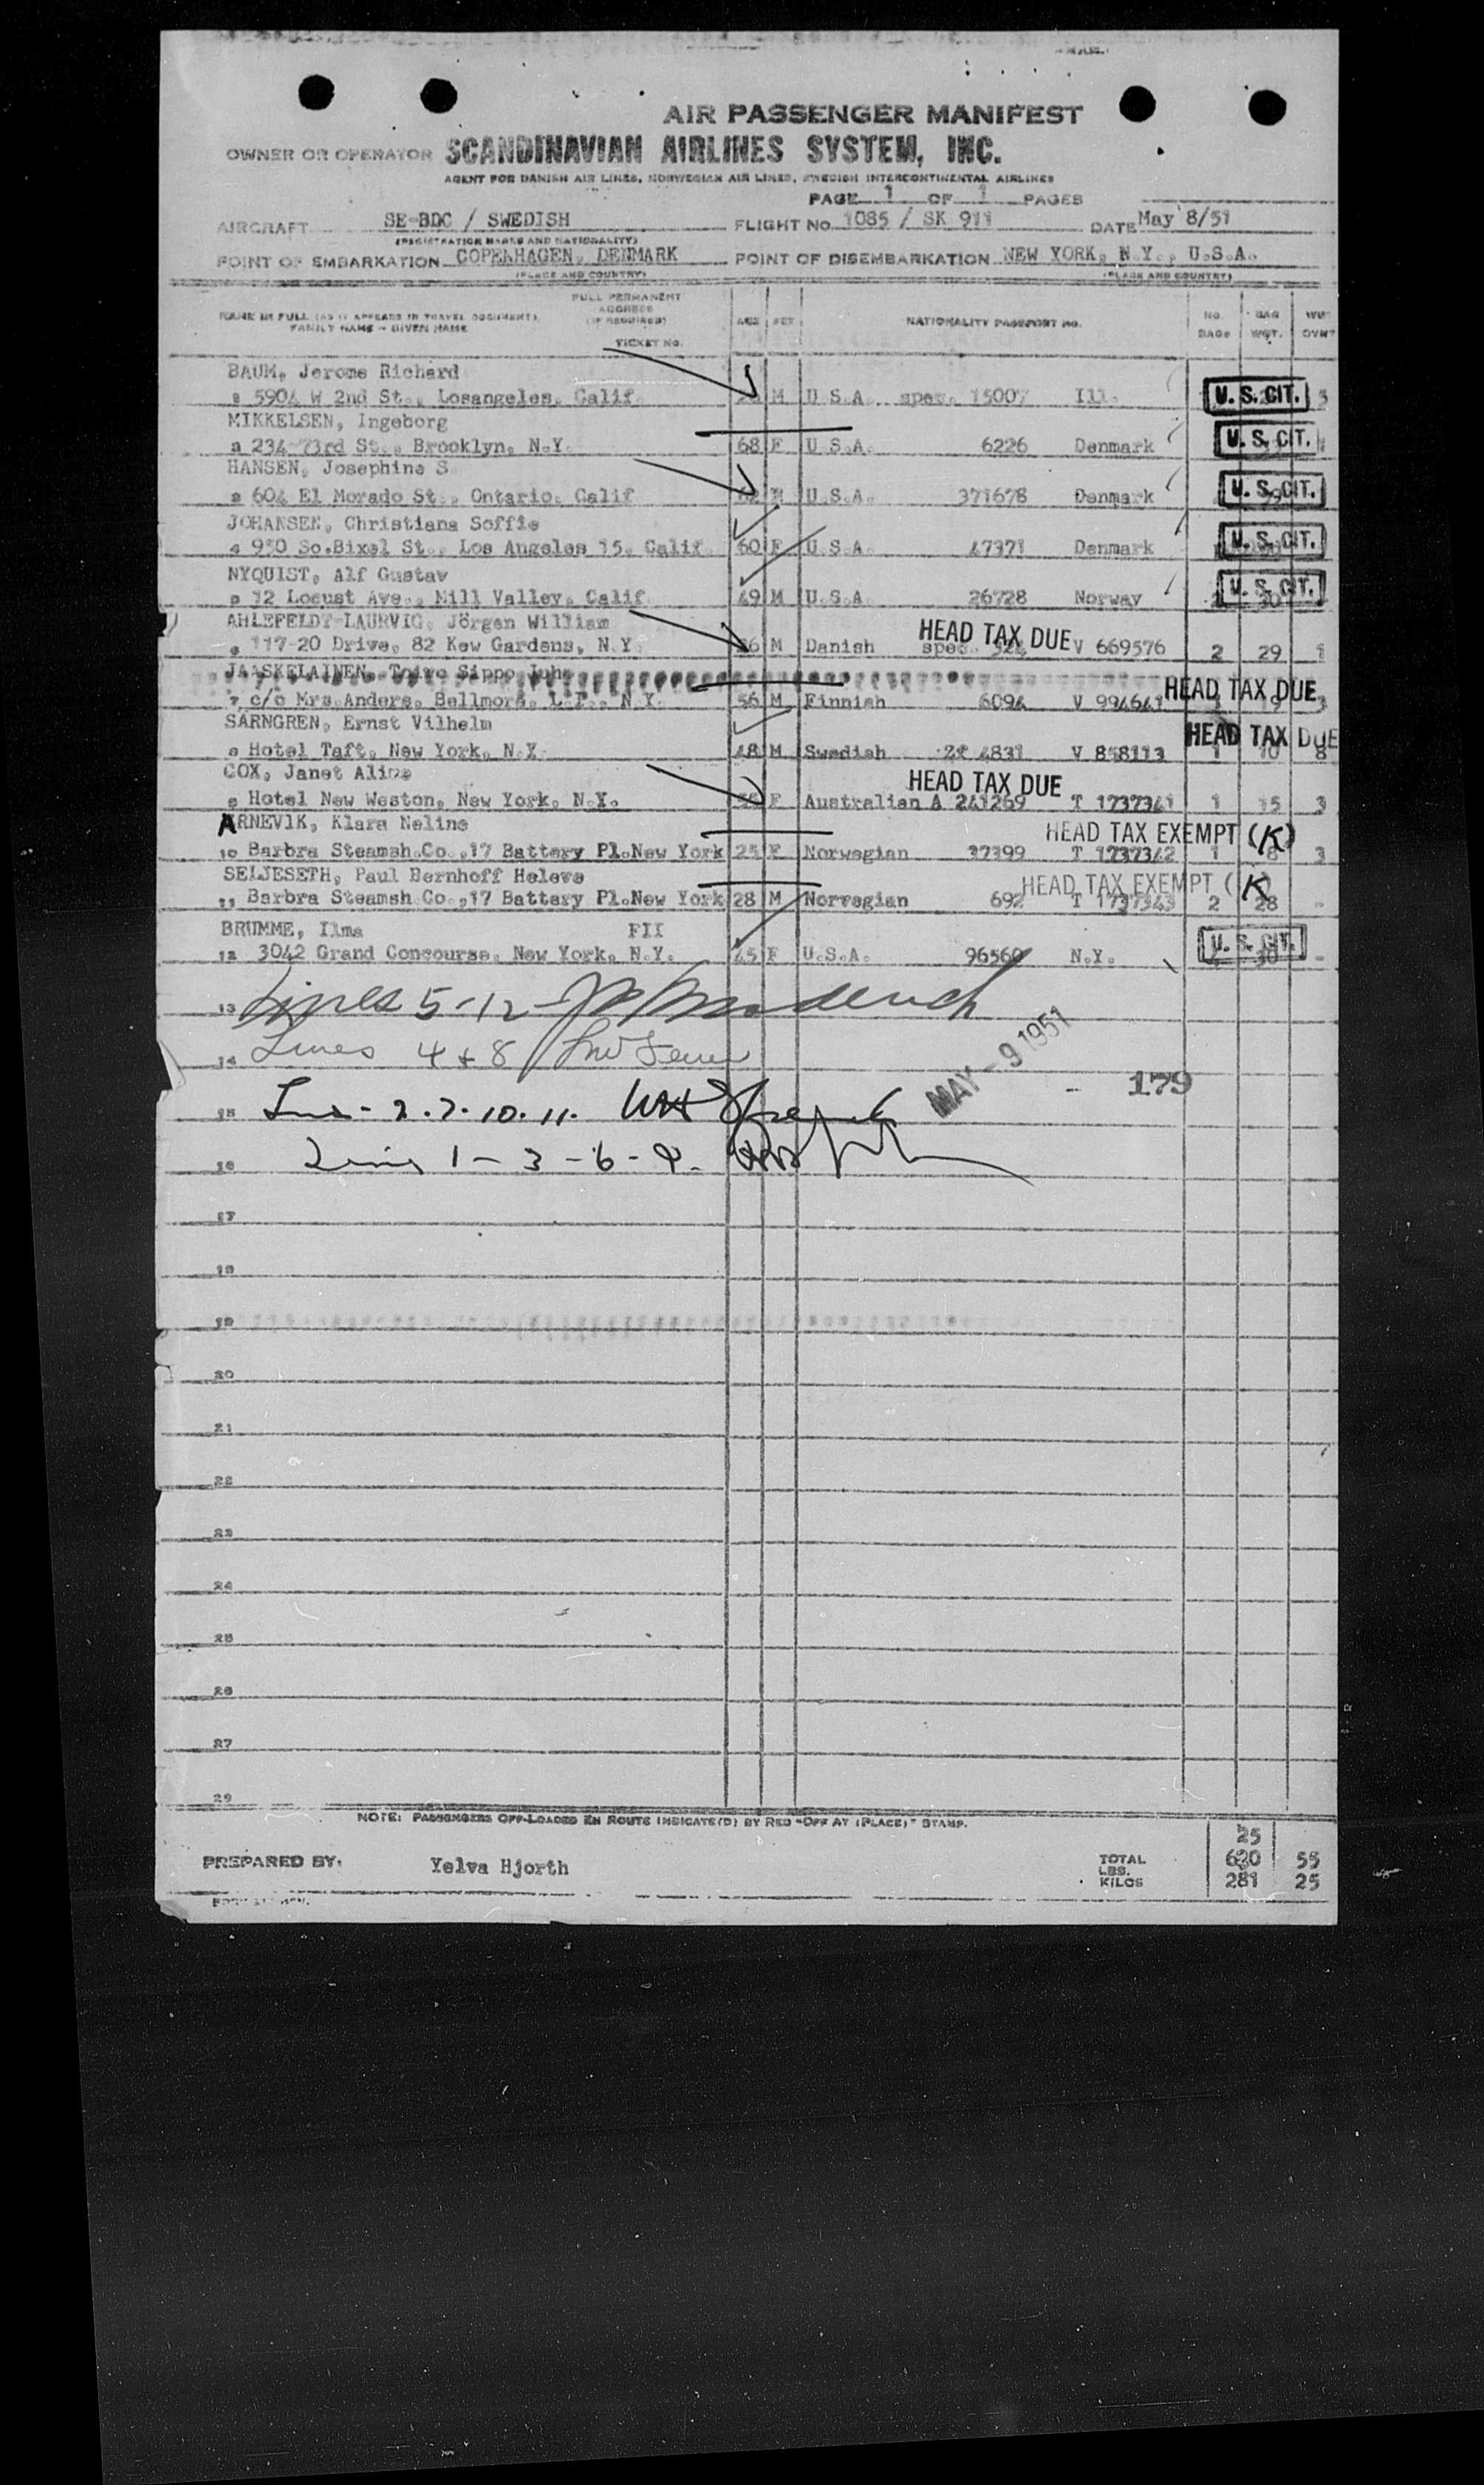 AIR PASSENGER MANIFEST
OWNER OR OPERATOR SCANDINAVIAN AIRLINES SYSTEM, INC.
AGENT FOR DANISH AIR LINES, NORWEGIAN AIR LINES, SWEDISH INTERCONTINENTAL AIRLINES
PAGE 1 OF 1 PAGES
AIRCRAFT SE-BDC / SWEDISH FLIGHT NO. 1085 / SK 911 DATE May 8/51
(REGISTRATION MARKS AND NATIONALITY)
POINT OF EMBARKATION COPENHAGEN, DENMARK POINT OF DISEMBARKATION NEW YORK, N.Y., U.S.A.
(PLACE AND COUNTRY) (PLACE AND COUNTRY)
FULL PERMANENT
ADDRESS
(IF REQUIRED)
NAME IN FULL (AS IT APPEARS IN TRAVEL DOCUMENT)
FAMILY NAME - GIVEN NAME
TICKET NO.
AGE SEX NATIONALITY PASSPORT NO. NO. BAGS BAG WGT.
BAUM, Jerome Richard
5904 W 2nd St., Losangeles, Calif. M U.S.A. spec. 15007 Ill. U. S. CIT. 3
MIKKELSEN, Ingeborg
2 234-73rd St., Brooklyn, N.Y. 68 F U.S.A. 6226 Denmark U. S. CIT.
HANSEN, Josephine S
604 El Morado St., Ontario, Calif U.S.A. 371678 Denmark U. S. CIT.
JOHANSEN, Christiana Soffie
4 950 So.Bixel St., Los Angeles 15, Calif. 60 F U.S.A. 47371 Denmark U. S. CIT.
NYQUIST, Alf Gustav
12 Locust Ave., Mill Valley, Calif. 49 M U.S.A. 26728 Norway U. S. CIT.
AHLEFELDT-LAURVIG, Jörgen William
117-20 Drive, 82 Kew Gardens, N.Y. M Danish spec. HEAD TAX DUE V 669576 2 29 1
JAASKELAINEN, Toivo Sippo Juho
7 c/o Mrs.Anders, Bellmore, L.I., N.Y. 56 M Finnish 6094 V 994641 HEAD TAX DUE 3
SÄRNGREN, Ernst Vilhelm HEAD TAX DUE
Hotel Taft, New York, N.Y. 48 M Swedish 4831 V 858113 1 10 8
COX, Janet Aline HEAD TAX DUE
Hotel New Weston, New York, N.Y. F Australian A 241269 T 1737341 1 15 3
ARNEVIK, Klara Neline HEAD TAX EXEMPT (K)
10 Barbra Steamsh.Co.,17 Battery Pl.New York 25 F Norwegian 37399 T 1737342 1 8 3
SELJESETH, Paul Bernhoff Heleve HEAD TAX EXEMPT (K)
11 Barbra Steamsh.Co.,17 Battery Pl.New York 28 M Norwegian 692 T 1737343 2 28 -
BRUMME, Ilma FII
12 3042 Grand Concourse, New York, N.Y. 45 F U.S.A. 96560 N.Y. U. S. CIT. -
13 Lines 5-12
14 Lines 4 + 8
MAY - 9 1951 - 179
15 2. 7. 10. 11.
16 Lines 1 - 3 - 6 - 9.
17
18
19
20
21
22
23
24
25
26
27
29
NOTE: PASSENGERS OFF-LOADED EN ROUTE INDICATE(D) BY RED "OFF AT (PLACE)" STAMP.
25
PREPARED BY: Yelva Hjorth
TOTAL
LBS. 620 55
KILOS 281 25